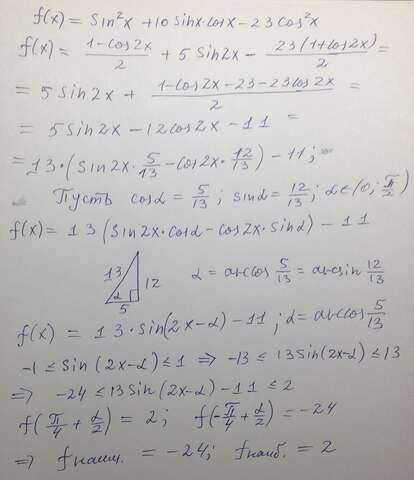 f(x) = sin²x + 10 sinx·cosx - 23 cos²x
f(x) = (1-cos2x)/2 + 5 sin2x - 23(1+cos2x)/2 =
= 5 sin2x + (1-cos2x-23-23cos2x)/2 =
= 5 sin2x - 12cos2x - 11 =
= 13·(sin2x·5/13 - cos2x·12/13) - 11;
Пусть cosα = 5/13; sinα = 12/13; α∈(0; π/2)
f(x) = 13(sin2x·cosα - cos2x·sinα) - 11
13 12 α 5
α = arccos 5/13 = arcsin 12/13
f(x) = 13·sin(2x-α) - 11; α = arccos 5/13
-1 ≤ sin(2x-α) ≤ 1 ⇒ -13 ≤ 13sin(2x-α) ≤ 13
⇒ -24 ≤ 13sin(2x-α) - 11 ≤ 2
f(π/4 + α/2) = 2; f(-π/4 + α/2) = -24
⇒ fнаим. = -24; fнаиб. = 2